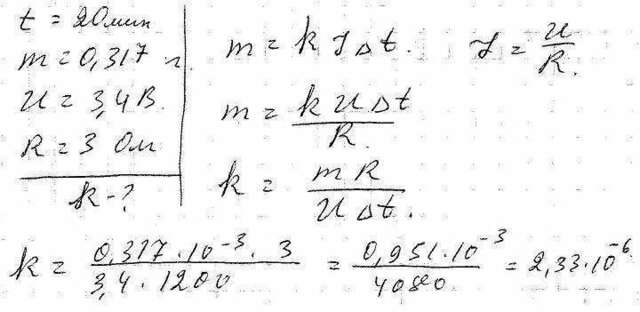 t = 20мин
m = 0,317 г.
U = 3,4 В.
R = 3 Ом
k - ?
m = k I Δt. I = U/R.
m = k U Δt / R.
k = m R / U Δt.
k = 0,317·10⁻³·3 / 3,4·1200 = 0,951·10⁻³ / 4080 = 2,33·10⁻⁶